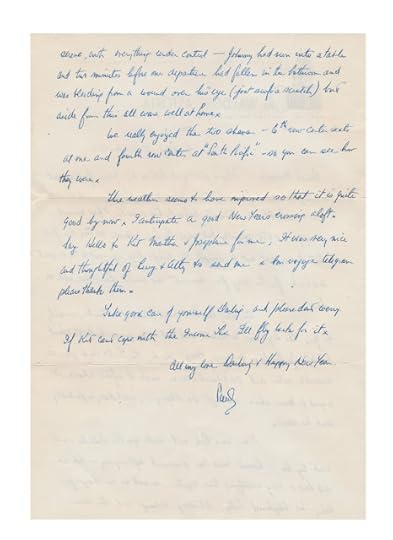 serene, with everything under control – Johnny had run into a table
and two minutes before our departure had fallen in the bathroom and
was bleeding from a wound over his eye (just surface scratch) but
aside from this all was well at home.
We really enjoyed the two shows – 6th row center seats
at one and fourth row center at "South Pacific" – so you can see how
they were.
The weather seems to have improved so that it is quite
good by now. I anticipate a good New Years crossing aloft.
Say Hello to Kit Martha & Josephine for me. It was very nice
and thoughtful of & to send me a bon voyage telegram
please thank them.
Take good care of yourself Darling and please don't worry
If Kit can't cope with the Income Tax I'll fly back for it.
All my love Darling & Happy New Year